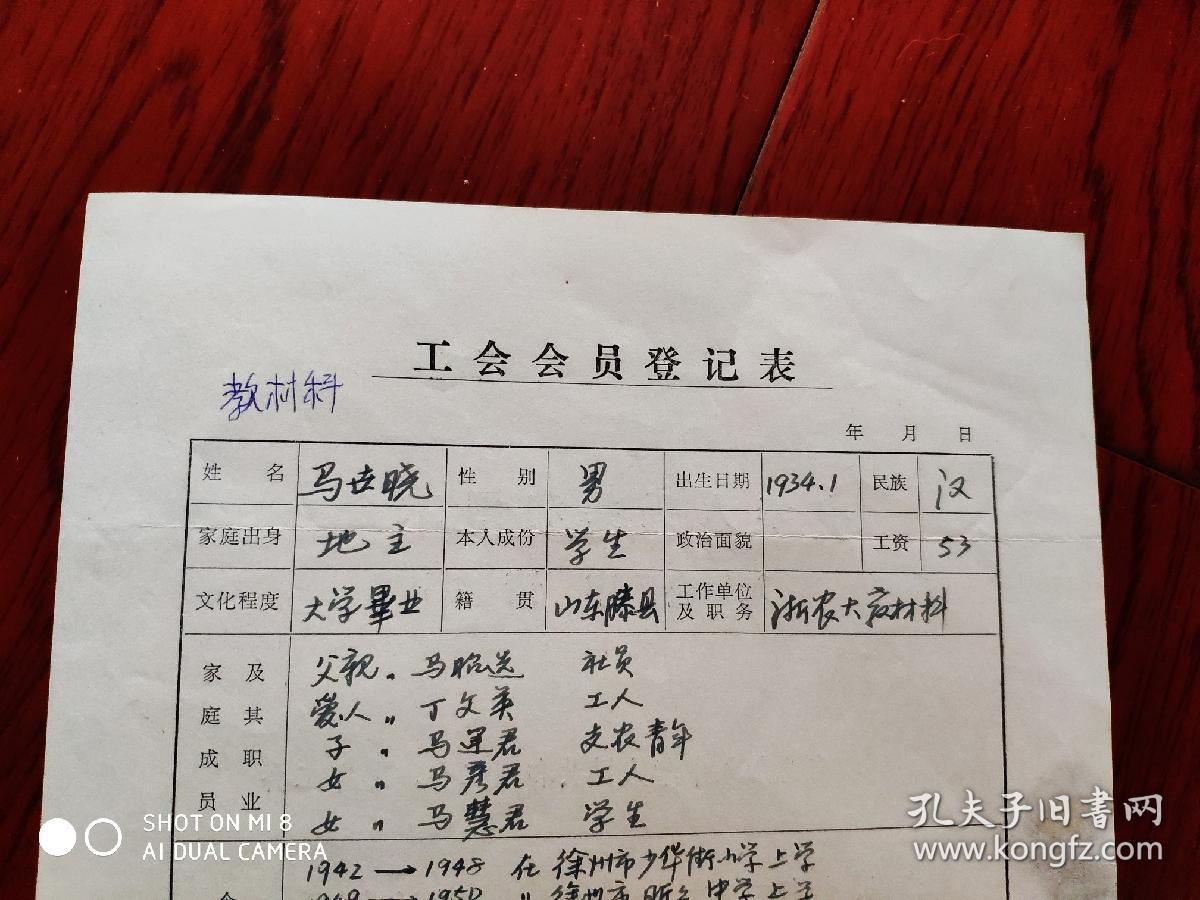 工会会员登记表
教材科
年 月 日
姓名 马世晓 性别 男 出生日期 1934.1 民族 汉
家庭出身 地主 本人成份 学生 政治面貌 工资 53
文化程度 大学畢业 籍贯 山东滕县 工作单位及职务 浙农大教材科
家庭成员及其职业
父親 〃 马昭 社员
爱人 〃 丁文英 工人
子 〃 马 君 支农青年
女 〃 马彦君 工人
女 〃 马慧君 学生
1942→1948 在徐州市少华街小学上学
→1950 〃 徐州市 中学上学
SHOT ON MI 8
AI DUAL CAMERA
孔夫子旧书网
www.kongfz.com